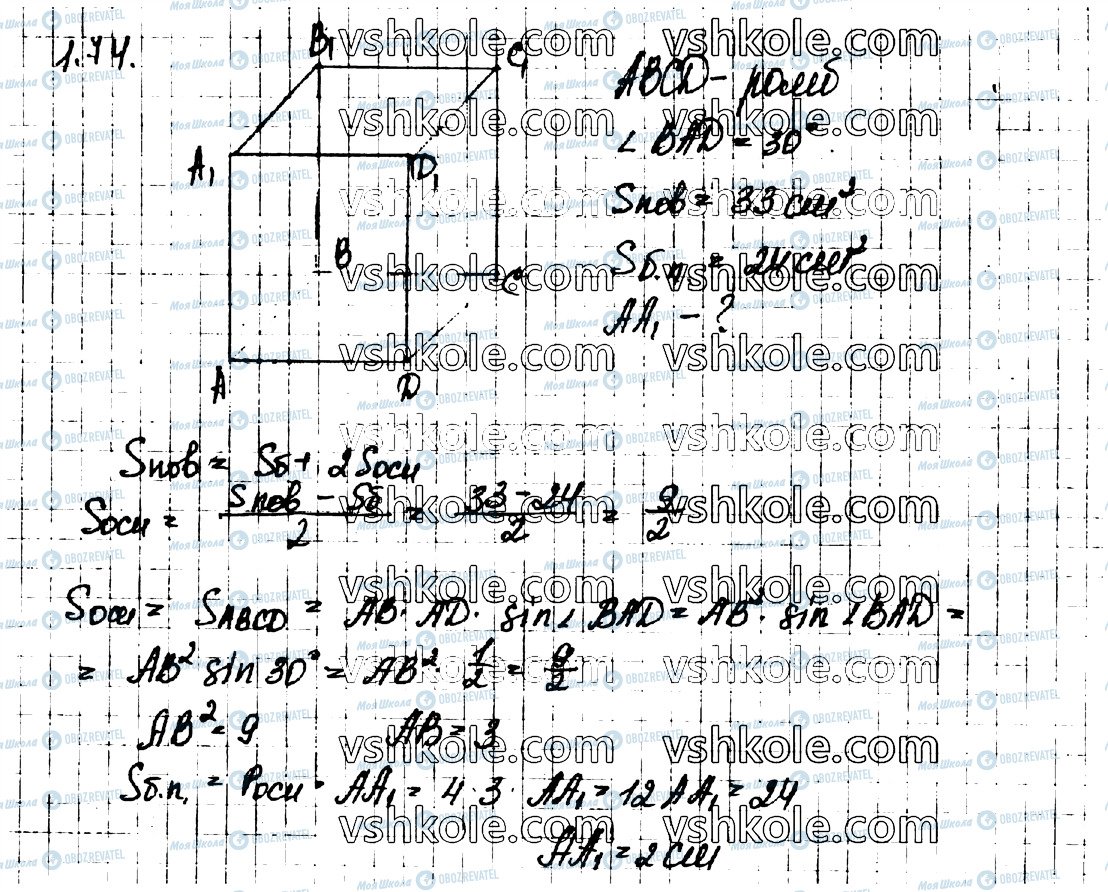 1.74.
B₁ C₁
A₁ D₁
B C
A D
ABCD - ромб
∠ BAD = 30°
Sпов = 33 см²
Sб.п. = 24 см²
AA₁ - ?
Sпов = Sб + 2Sосн
Sосн = (Sпов - Sб)/2 = (33 - 24)/2 = 9/2
Sосн = S_ABCD = AB · AD · sin ∠ BAD = AB² · sin ∠ BAD =
= AB² sin 30° = AB² · 1/2 = 9/2
AB² = 9 AB = 3
Sб.п. = Pосн · AA₁ = 4 · 3 · AA₁ = 12 AA₁ = 24
AA₁ = 2 см
vshkole.com
МояШкола OBOZREVATEL